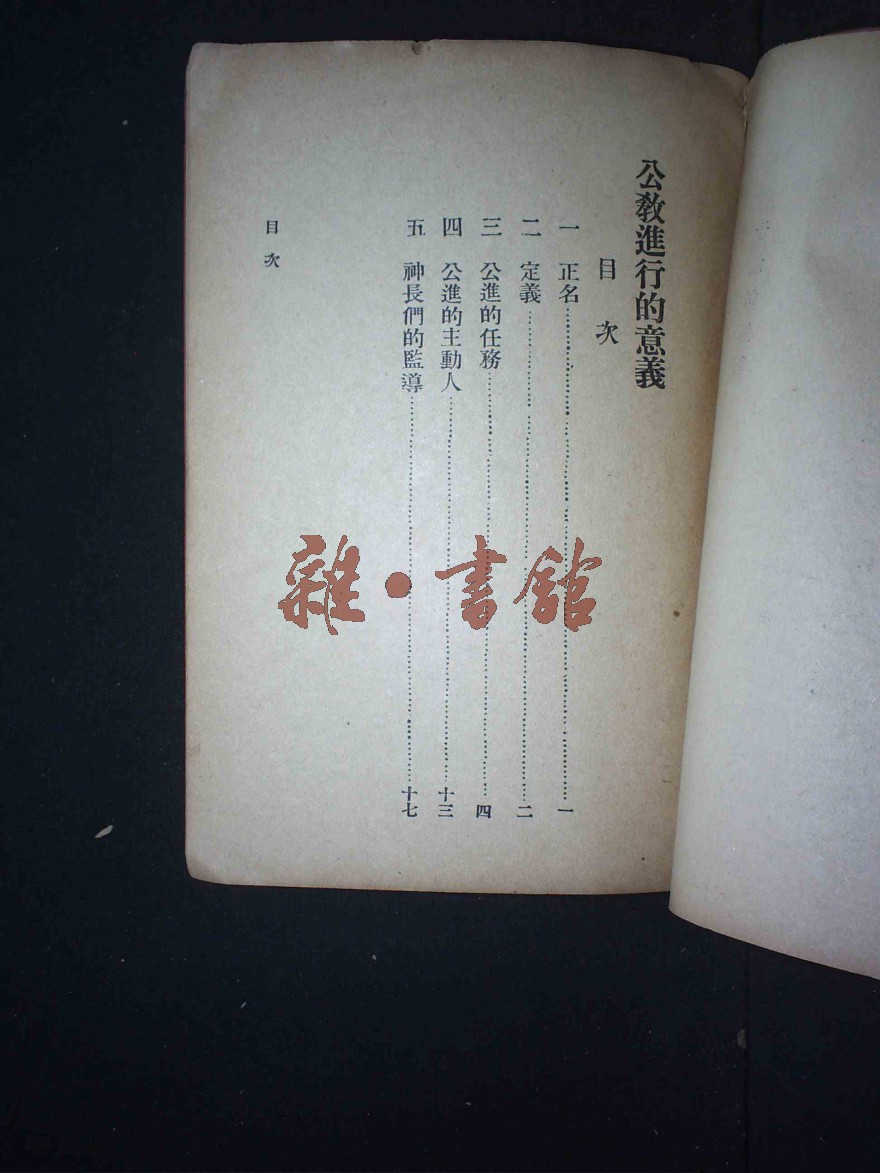 公教進行的意義
目次
一 正名…………一
二 定義…………二
三 公進的任務…………四
四 公進的主動人…………十三
五 神長們的監導…………十七
目次
雜·書館